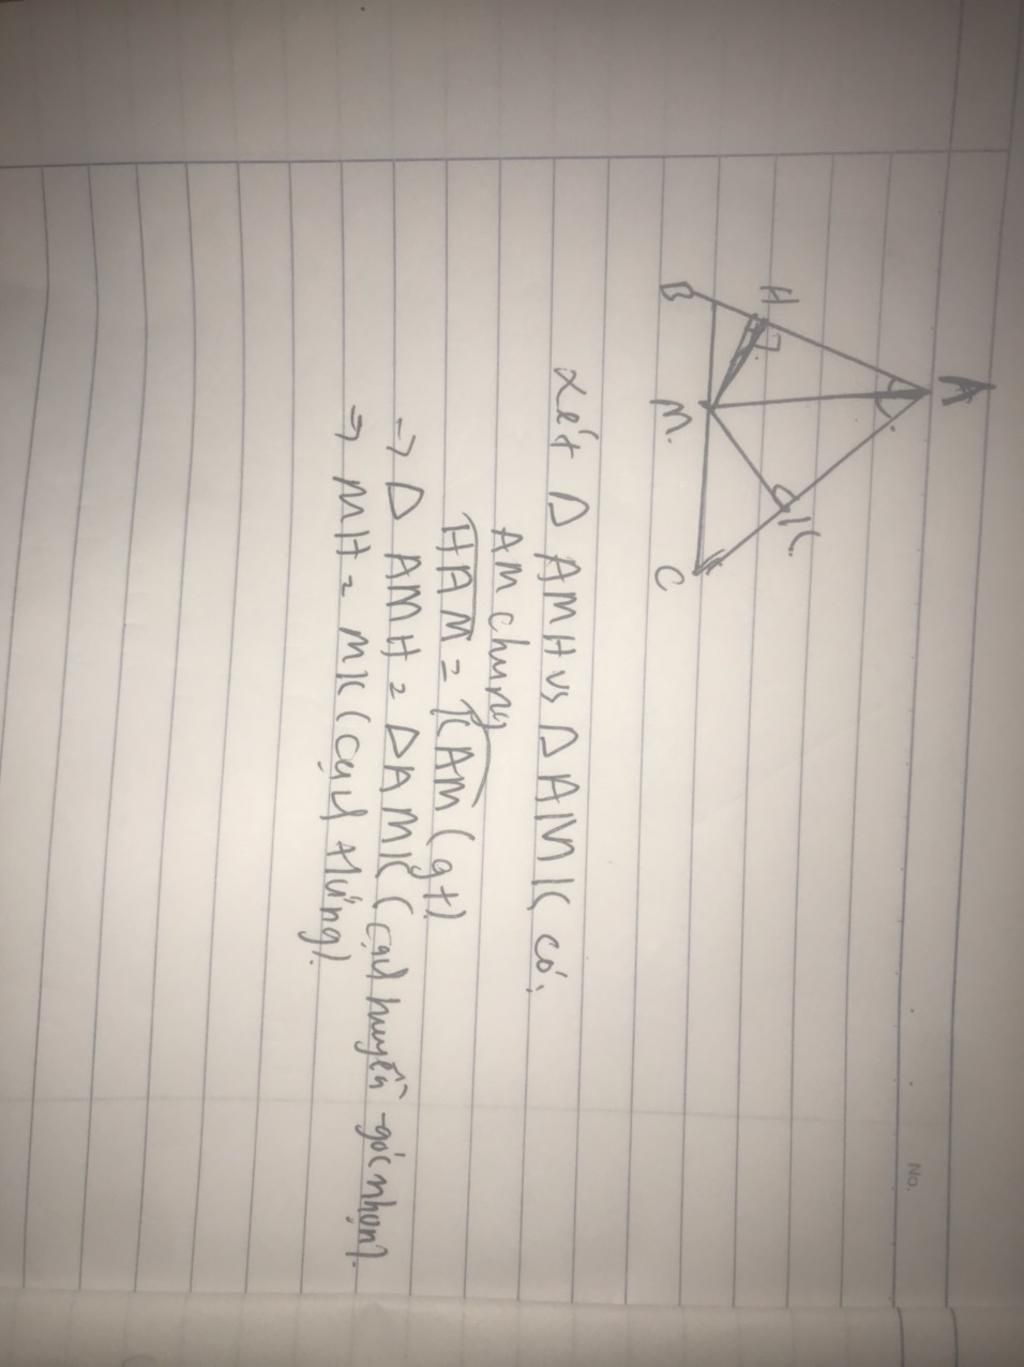 No.
A
H
K
B
M.
C
Xét Δ AMH vs Δ AMK có,
AM chung
HAM = KAM (gt)
→ Δ AMH = Δ AMK (cạh huyền - góc nhọn).
→ MH = MK (cạh tứng).